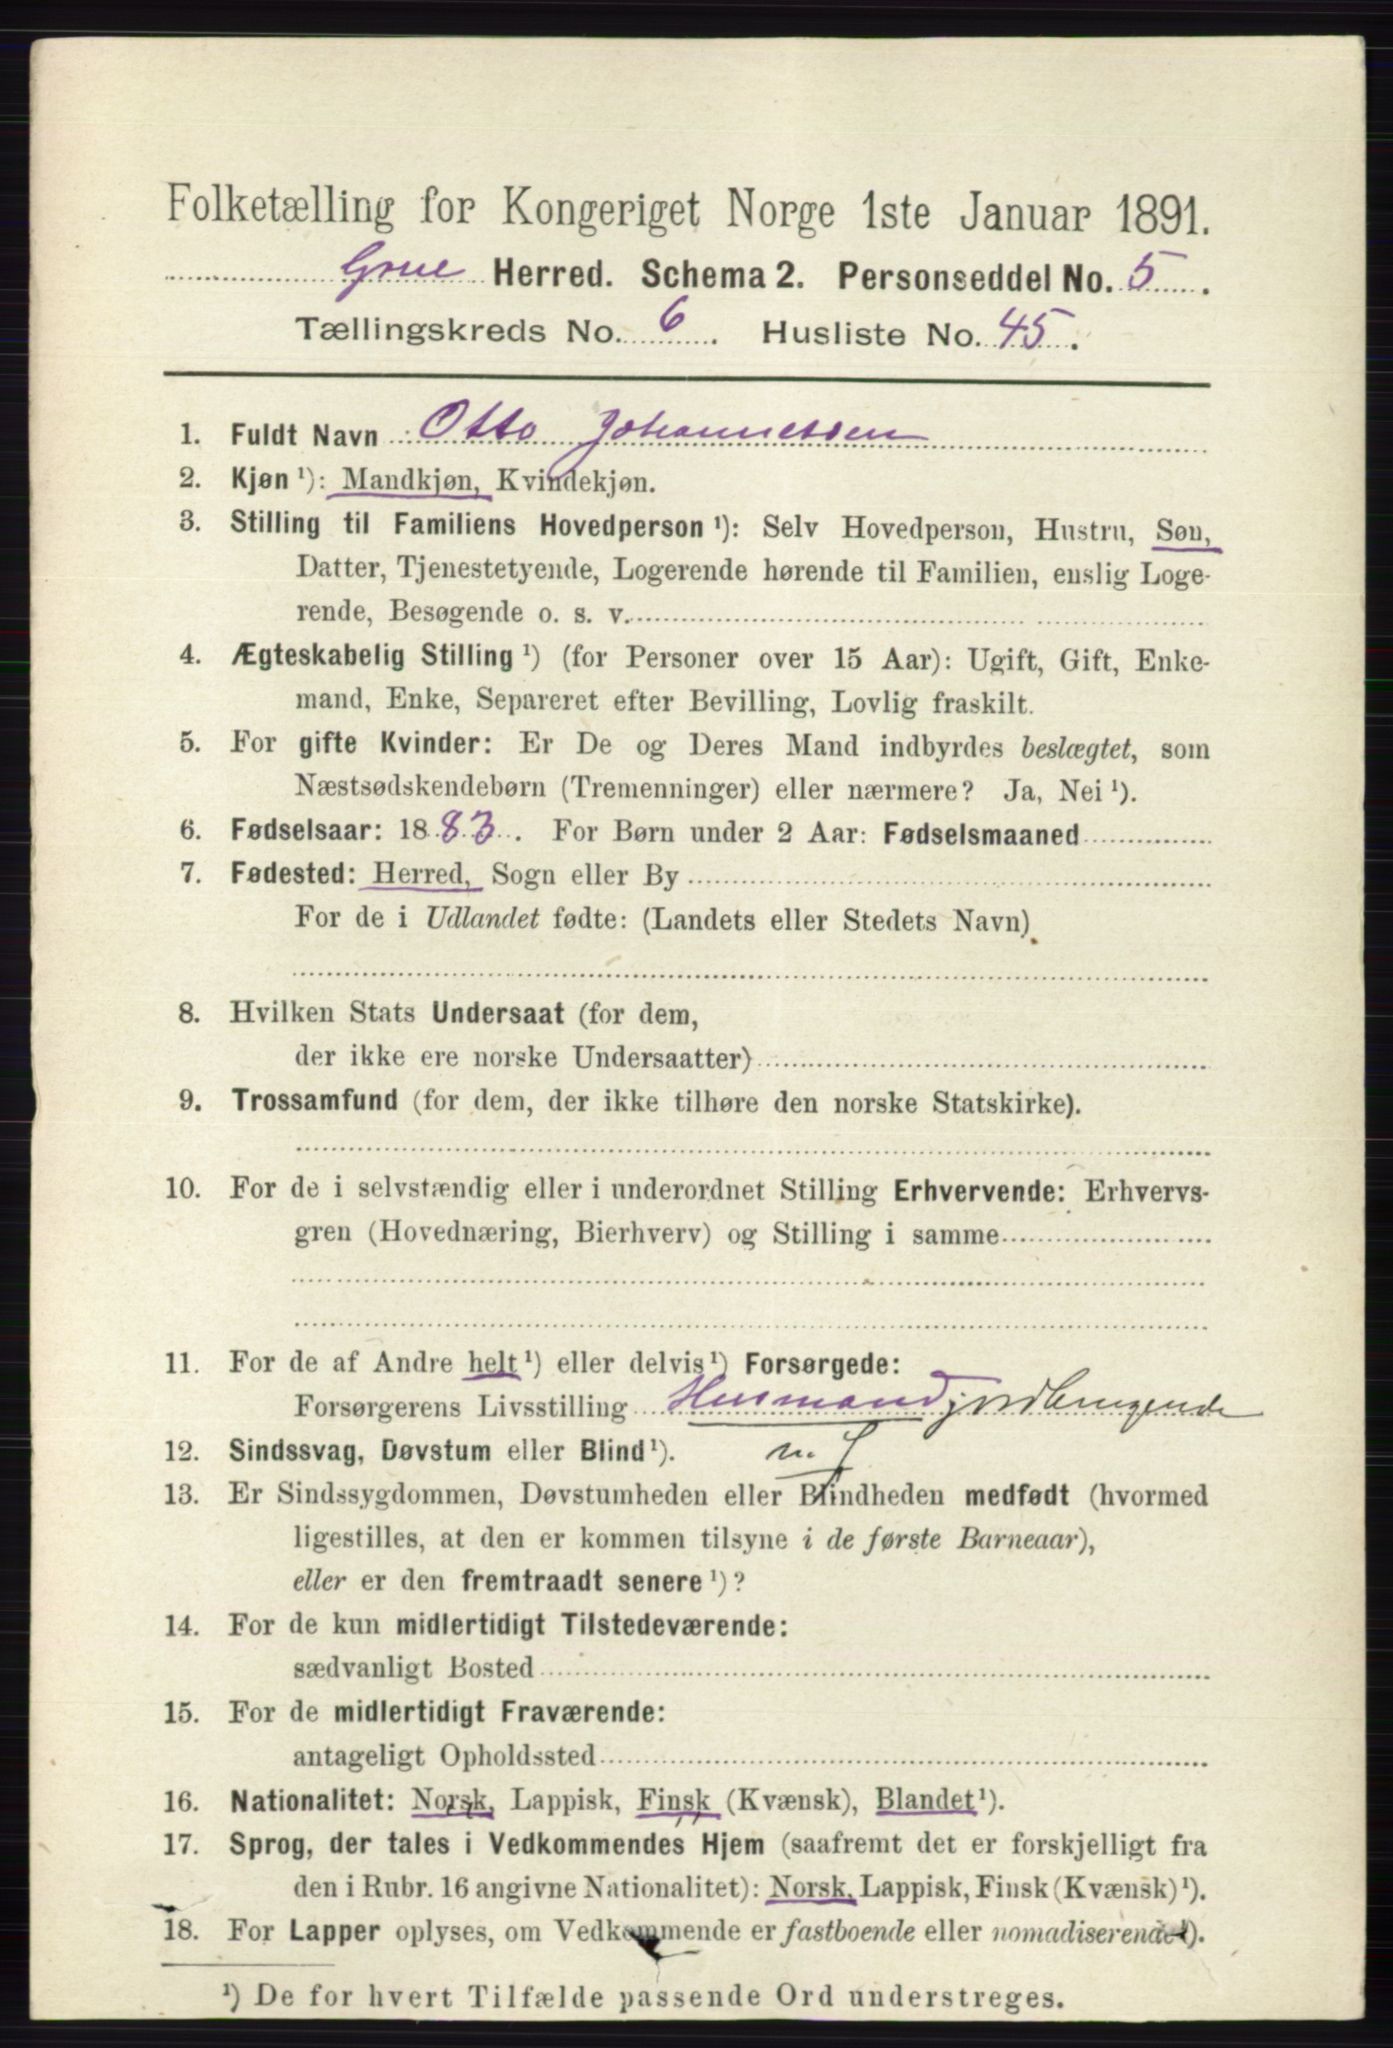 Folketælling for Kongeriget Norge 1ste Januar 1891.
Grue Herred. Schema 2. Personseddel No. 5.
Tællingskreds No. 6. Husliste No. 45.
1. Fuldt Navn Otto Johannessen
2. Kjøn ¹): Mandkjøn, Kvindekjøn.
3. Stilling til Familiens Hovedperson ¹): Selv Hovedperson, Hustru, Søn,
Datter, Tjenestetyende, Logerende hørende til Familien, enslig Loge-
rende, Besøgende o. s. v.
4. Ægteskabelig Stilling ¹) (for Personer over 15 Aar): Ugift, Gift, Enke-
mand, Enke, Separeret efter Bevilling, Lovlig fraskilt.
5. For gifte Kvinder: Er De og Deres Mand indbyrdes beslægtet, som
Næstsødskendebørn (Tremenninger) eller nærmere? Ja, Nei ¹).
6. Fødselsaar: 1883. For Børn under 2 Aar: Fødselsmaaned
7. Fødested: Herred, Sogn eller By
For de i Udlandet fødte: (Landets eller Stedets Navn)
8. Hvilken Stats Undersaat (for dem,
der ikke ere norske Undersaatter)
9. Trossamfund (for dem, der ikke tilhøre den norske Statskirke).
10. For de i selvstændig eller i underordnet Stilling Erhvervende: Erhvervs-
gren (Hovednæring, Bierhverv) og Stilling i samme
11. For de af Andre helt ¹) eller delvis ¹) Forsørgede:
Forsørgerens Livsstilling Husmand jordbrugende
12. Sindssvag, Døvstum eller Blind ¹). m. J
13. Er Sindssygdommen, Døvstumheden eller Blindheden medfødt (hvormed
ligestilles, at den er kommen tilsyne i de første Barneaar),
eller er den fremtraadt senere ¹)?
14. For de kun midlertidigt Tilstedeværende:
sædvanligt Bosted
15. For de midlertidigt Fraværende:
antageligt Opholdssted
16. Nationalitet: Norsk, Lappisk, Finsk (Kvænsk), Blandet ¹).
17. Sprog, der tales i Vedkommendes Hjem (saafremt det er forskjelligt fra
den i Rubr. 16 angivne Nationalitet): Norsk, Lappisk, Finsk (Kvænsk) ¹).
18. For Lapper oplyses, om Vedkommende er fastboende eller nomadiserende ¹).
¹) De for hvert Tilfælde passende Ord understreges.